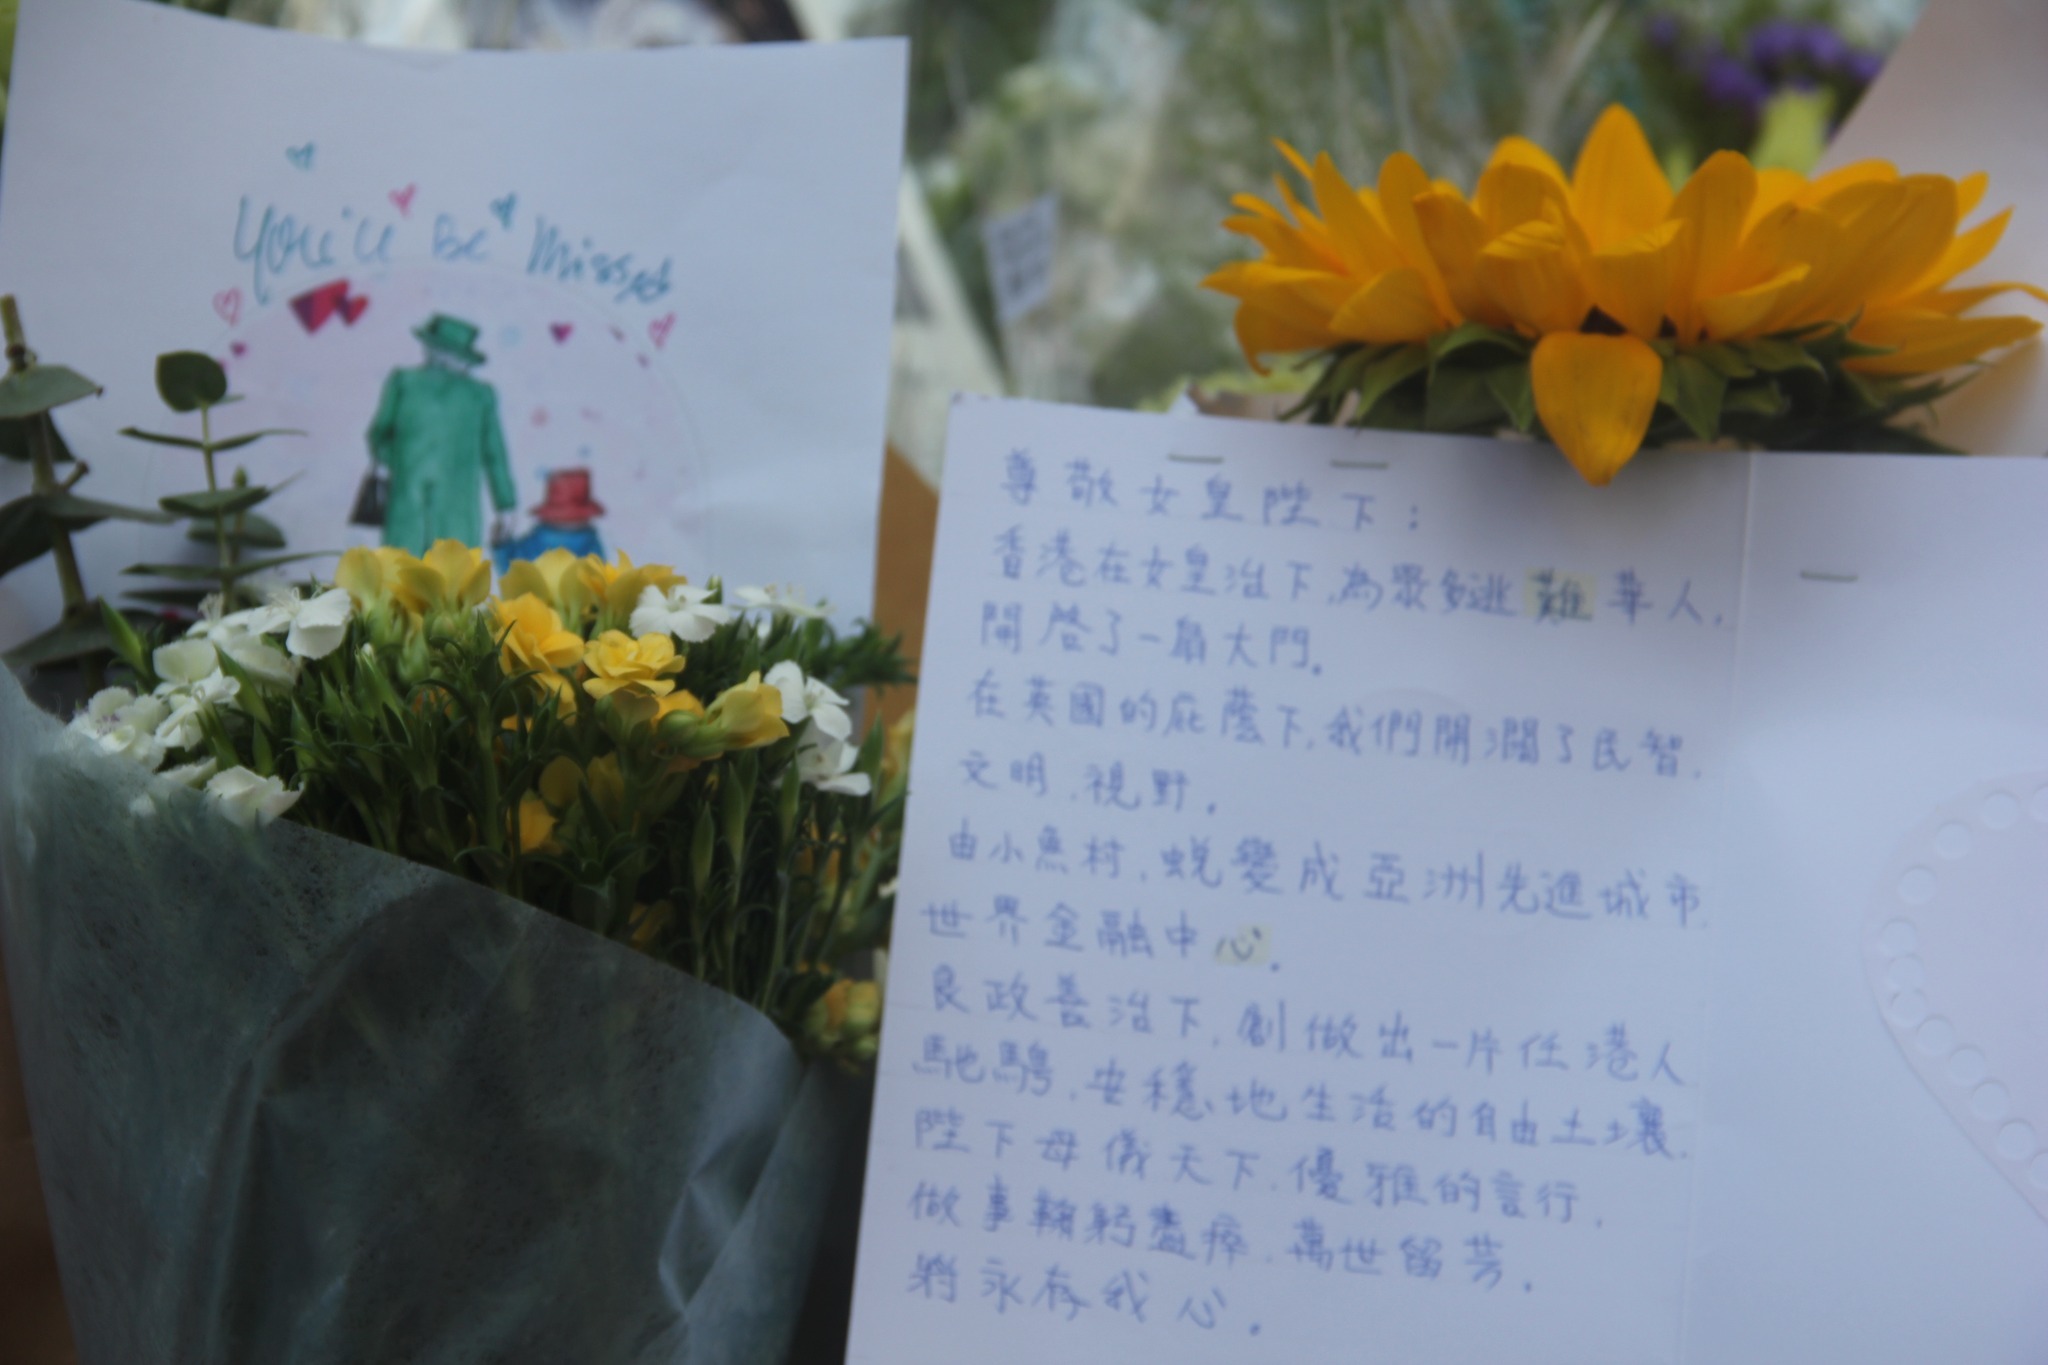 You'll Be Missed
尊敬女皇陛下：
香港在女皇治下,為眾多逃難華人,
開啓了一扇大門.
在英國的庇蔭下,我們開濶了民智,
文明,視野.
由小魚村,蛻變成亞洲先進城市,
世界金融中心.
良政善治下,創做出一片任港人
馳騁,安穩地生活的自由土壤.
陛下母儀天下,優雅的言行,
做事鞠躬盡瘁,萬世留芳.
將永存我心.